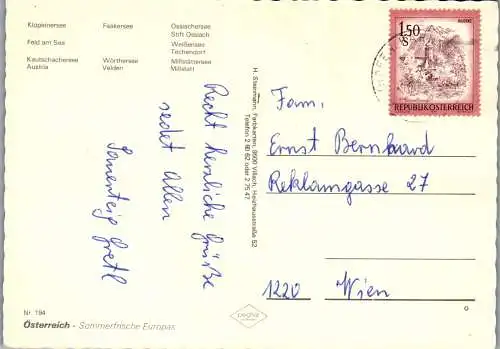 Klopeinersee
Feld am See
Keutschachersee
Austria
Faakersee
Wörthersee
Velden
Ossiachersee
Stift Ossiach
Weißensee
Techendorf
Millstättersee
Millstatt
Recht herzliche Grüße
sedet Allen
Gretl
H. Steinmann, Farbkarten, 9500 Villach, Heizhausstraße 52
Telefon 2 60 62 oder 2 75 47
1.50
S
RUDOC
REPUBLIK ÖSTERREICH
Fam,
Ernst Bernhard
Reklamgasse 27
1220 Wien
Nr. 194
Österreich - Sommerfrische Europas